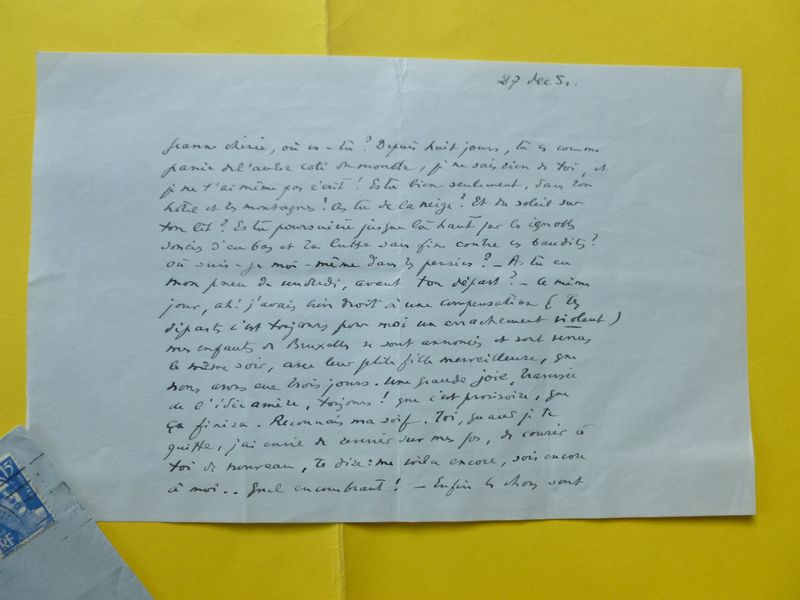 27 dec 51.
Jeanne chérie, où es-tu? Depuis huit jours, tu es comme
passée de l'autre coté du monde, je ne sais rien de toi, et
je ne t'ai même pas écrit! Es tu bien seulement, dans ton
hotel et tes montagnes! As tu de la neige? Et du soleil sur
ton lit? Es tu poursuivie jusque là haut par les ignobles
soucis d'en bas et ta lutte sans fin contre ces bandits?
où suis-je moi-même dans tes pensées? - As tu eu
mon pneu de vendredi, avant ton départ? - Ce même
jour, ah! j'avais bien droit à une compensation (tes
départs c'est toujours pour moi un arrachement violent)
mes enfants de Bruxelles se sont annoncés et sont venus
le même soir, avec leur petite fille merveilleuse, que
nous avons eue trois jours. Une grande joie, traversée
de l'idée amère, toujours! que c'est provisoire, que
ça finira. Reconnais ma soif. Toi, quand je te
quitte, j'ai envie de revenir sur mes pas, de courir à
toi de nouveau, te dire: me voilà encore, sois encore
à moi.. Quel encombrant! - Enfin les choses sont
15
RF